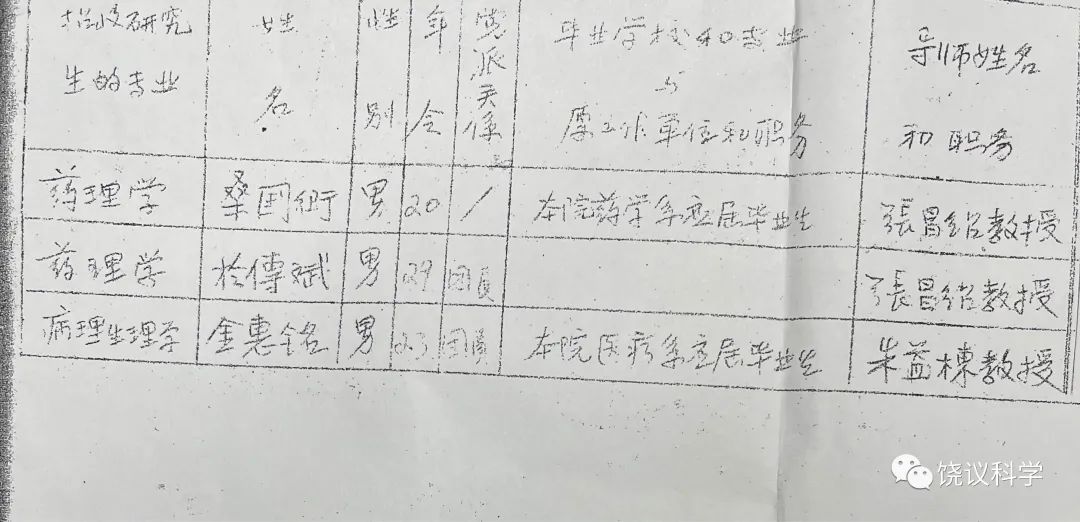 招收研究生的专业 姓名 性别 年令 党派关係 毕业学校和专业与原工作单位和职务 导师姓名和职务
药理学 桑国衛 男 20 / 本院药学系应届毕业生 張昌绍教授
药理学 於傳斌 男 29 团员 張昌绍教授
病理生理学 金惠铭 男 23 团员 本院医疗系应届毕业生 朱益棟教授
饶议科学